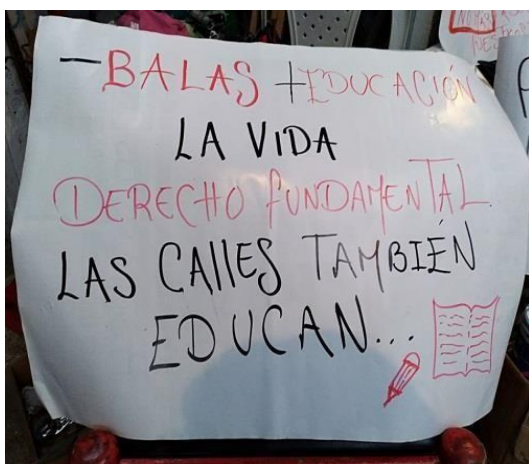 – BALAS + EDUCACIÓN
LA VIDA
DERECHO FUNDAMENTAL.
LAS CALLES TAMBIÉN
EDUCAN...